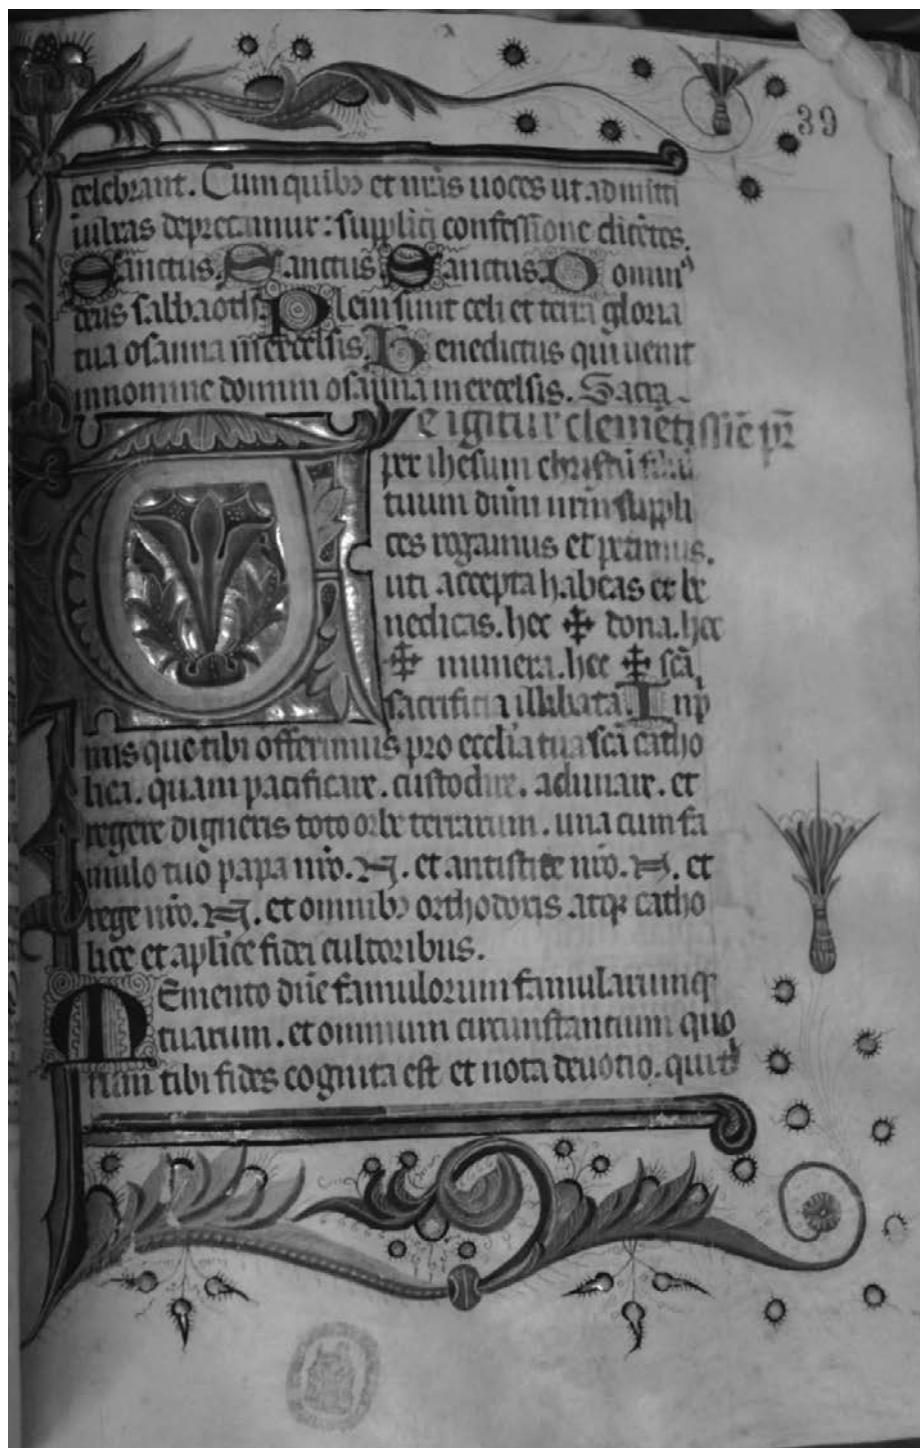 39
celebrant. Cum quibꝰ et nr̃as uoces ut admitti
iubeas deprecamur: supplici confessione dicẽtes.
Sanctus. Sanctus Sanctus. Dominꝰ
deus sabaoth. Pleni sunt celi et terra gloria
tua osanna in excelsis. Benedictus qui uenit
in nomine domini osanna in excelsis. Sacra
Te igitur clemẽtissiẽ pr̃
per ihesum christũ filiũ
tuum dñm nr̃m suppli
ces rogamus et petimus.
uti accepta habeas et be
nedicas. hec ✠ dona. hec
✠ munera. hec ✠ scã
sacrificia illibata. Inp
mis que tibi offerimus pro ecclia tua scã catho
lica. quam pacificare. custodire. adunare. et
regere digneris toto orbe terrarum. una cum fa
mulo tuo papa nr̃o. N. et antistite nr̃o. N. et
rege nr̃o. N. et omnibꝰ orthodoxis atqꝫ catho
lice et aplice fidei cultoribus.
Memento dñe famulorum famularumqꝫ
tuarum. et omnium circunstantium quo
rum tibi fides cognita est et nota deuotio. quibꝰ